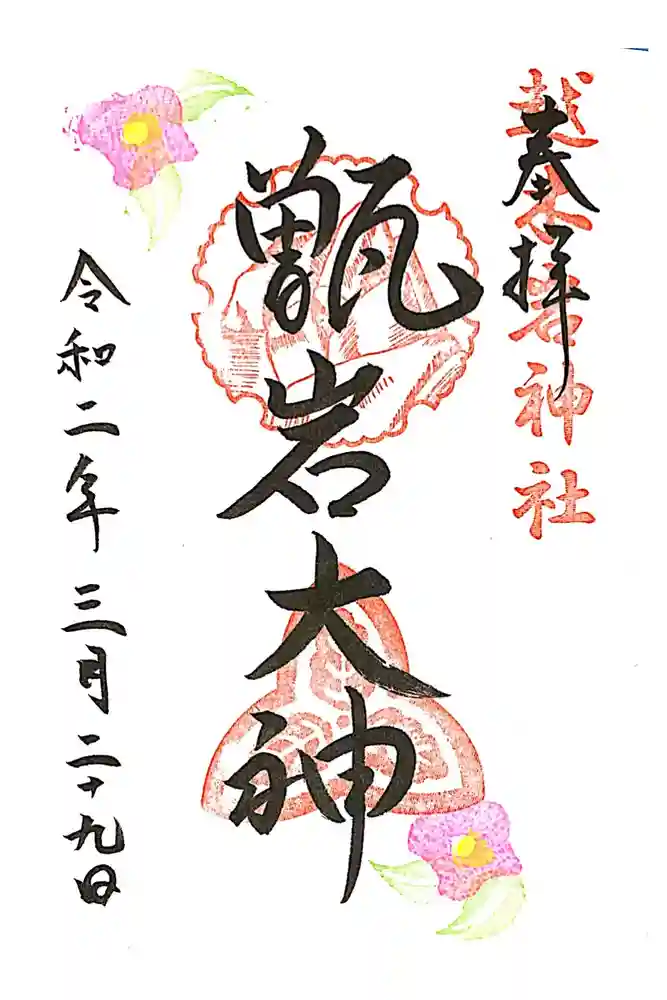 越木岩神社
奉拝
甑岩大神
令和二年三月二十九日